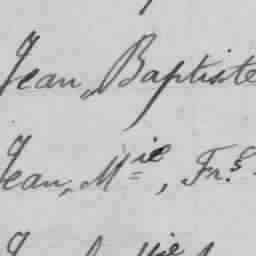 Jean, Baptiste
Jean, Mie, Frs.